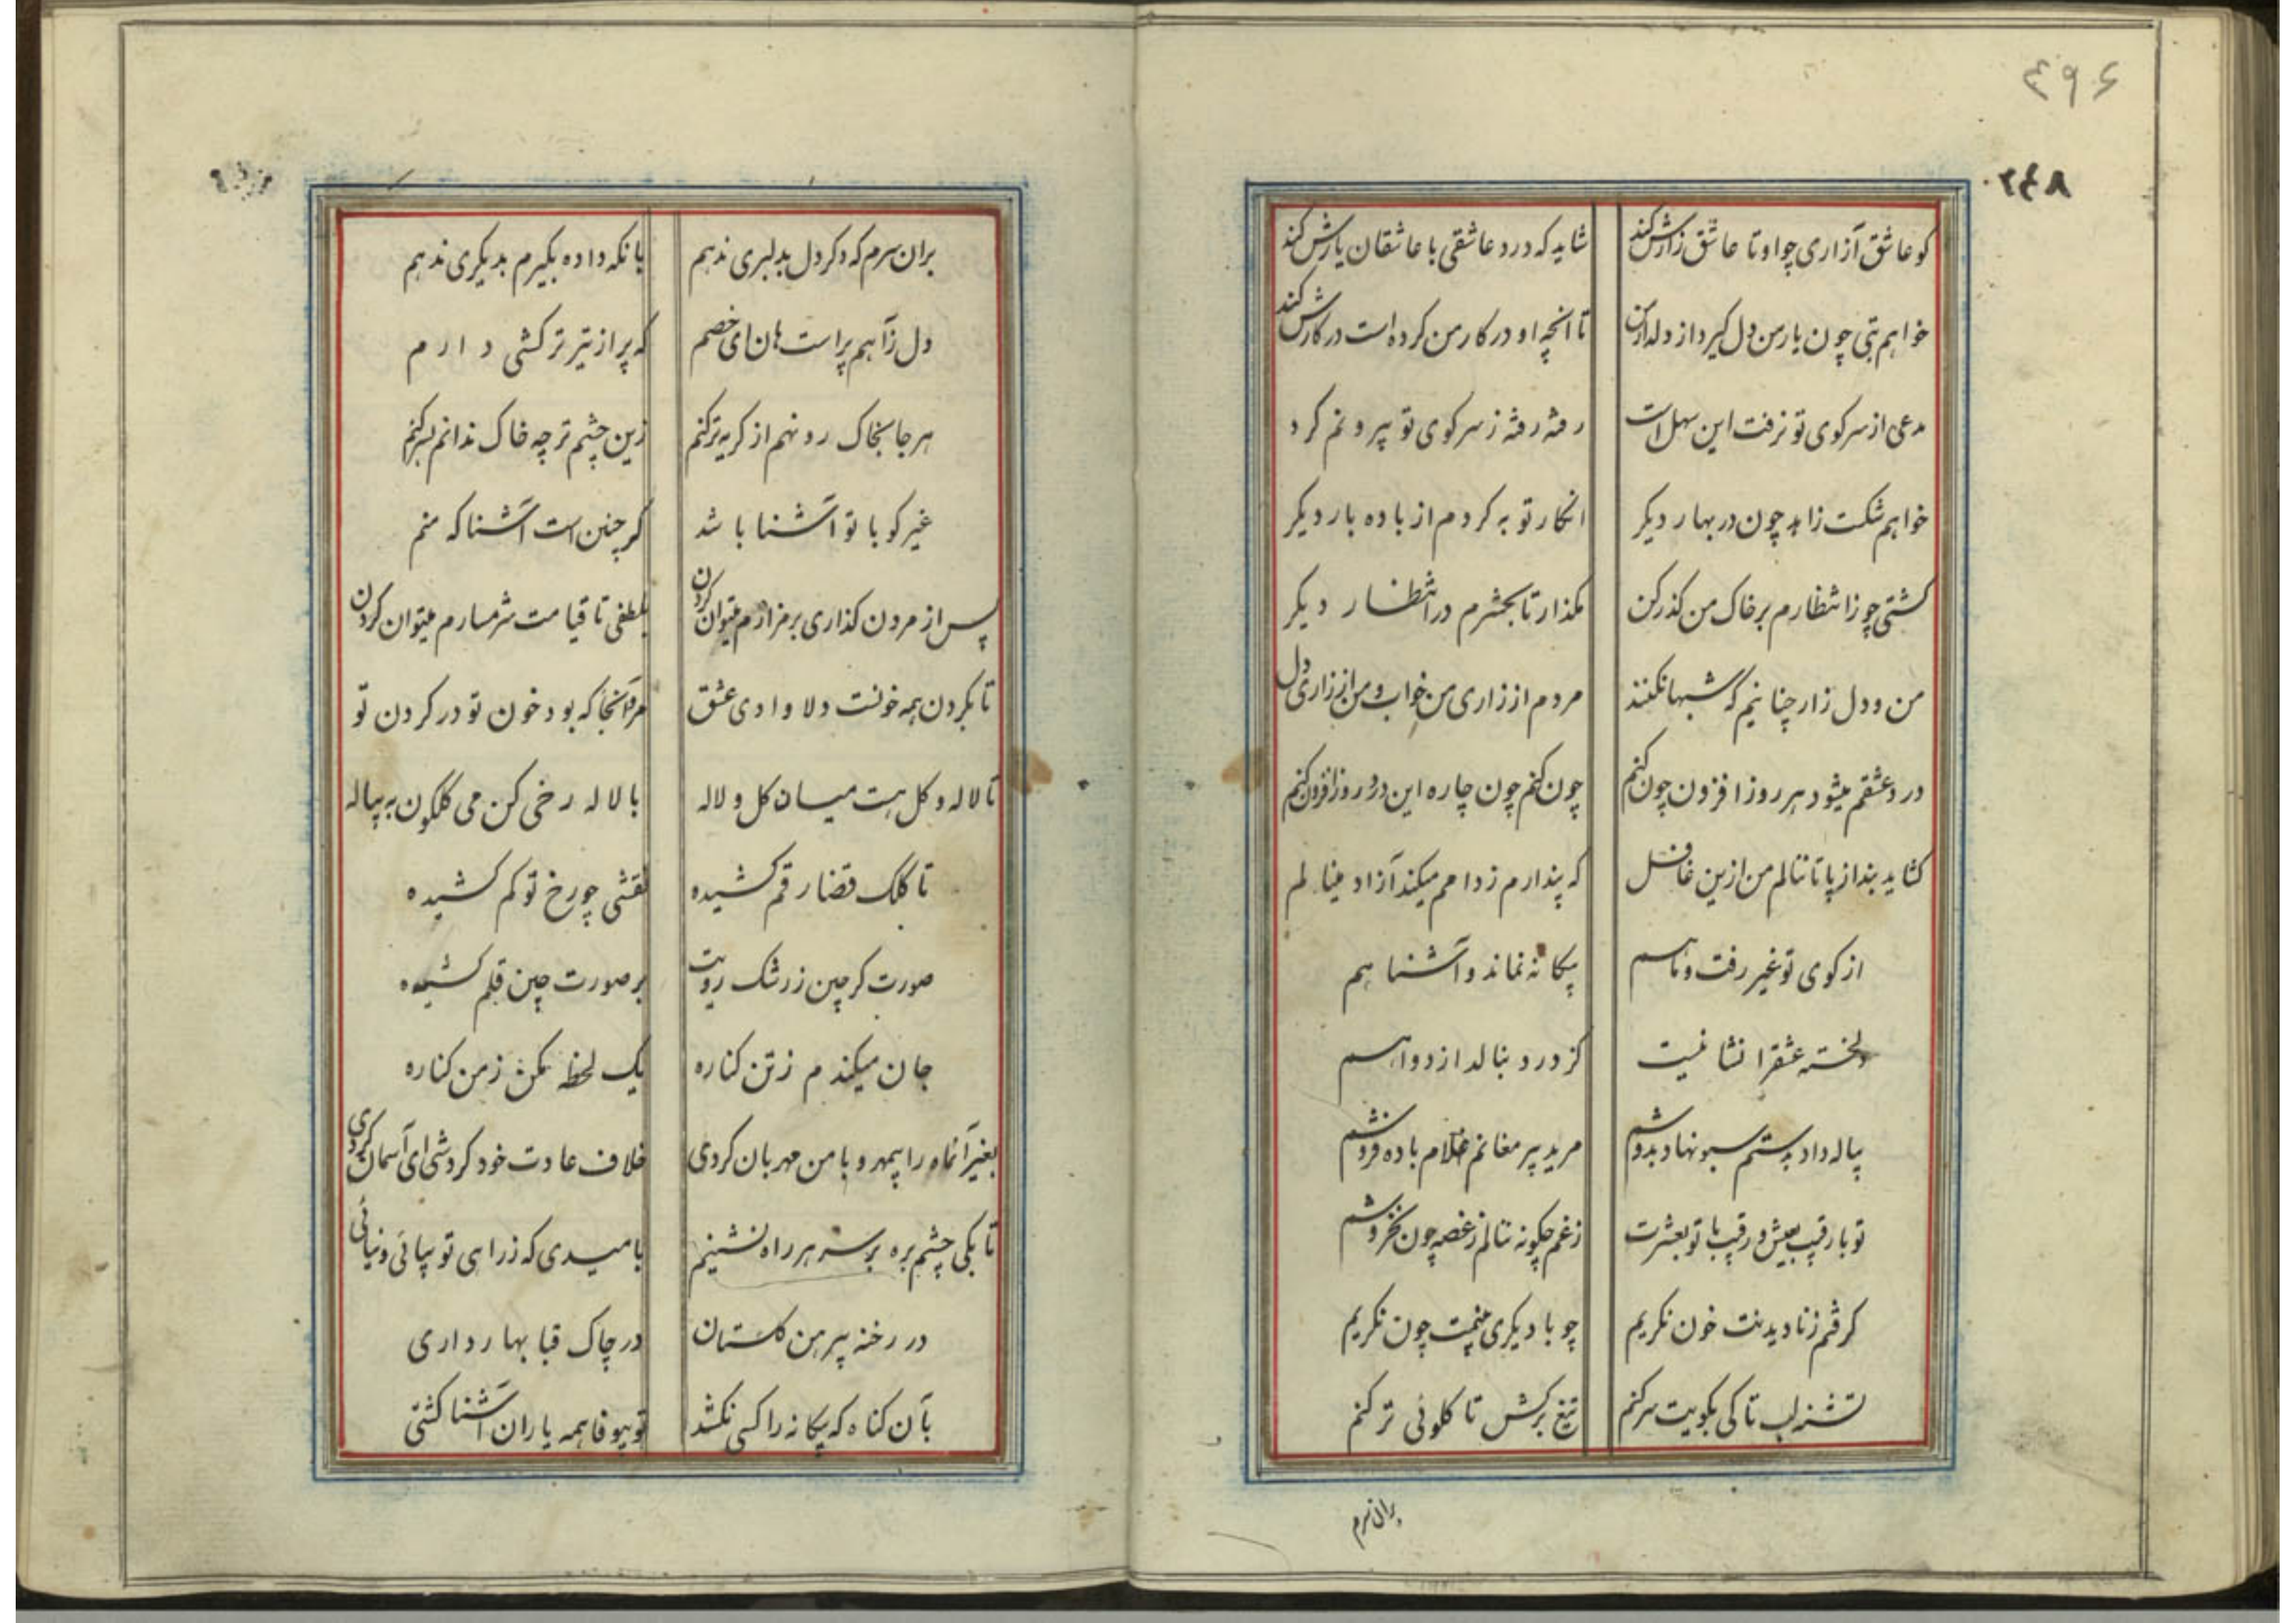 ۴۹۶
۲۴۸
کو عاشق آزاری چو او تا عاشق زارش کند شاید که درد عاشقی با عاشقان یارش کند
خواهم بتی چون یار من دل گیرد از دلدار من تا آنچه او در کار من کرده است در کارش کند
مدعی از سر کوی تو نرفت این سهل است رفته رفته ز سر کوی تو بیرونم کرد
خواهم شکست زاهد چون در بهار دیکر انکار توبه کردم از باده بار دیکر
کشتی چو ز انتظارم بر خاک من کذر کن مکذار تا بحشرم در انتظار دیکر
من و دل زار چنانیم که شبها نکنند مردم از زاری من خواب و من از زاری دل
درد عشقم میشود هر روز افزون چون کنم چون کنم چون چاره این درد روز افزون کنم
کشاید بند از پا تا ننالم من ازین غافل که پندارم ز دامم میکند آزاد مینالم
از کوی تو غیر رفت و ما هم بیکانه نماند و آشنا هم
دلخسته عشقرا شفا نیست کز درد بنالد از دوا هم
پیاله داد بدستم سبو نهاد بدوشم مرید پیر مغانم غلام باده فروشم
تو با رقیب بعیش و رقیب با تو بعشرت ز غم چکونه ننالم ز غصه چون نخروشم
کرفتم ز نادیدنت خون نکریم چو با دیکری بینمت چون نکریم
تشنه لب تا کی بکویت سر کنم تیغ برکش تا کلوئی تر کنم
بران سرم
بران سرم که دکر دل بدلبری ندهم بانکه داده بکیرم بدیکری ندهم
دل ز آهم پر است هان ای خصم که پر از تیر ترکشی دارم
هر جا بخاک رو نهم از کریه تر کنم زین چشم تر چه خاک ندانم بسر کنم
غیر کو با تو آشنا باشد کر چنین است آشنا که منم
پس از مردن کذاری بر مزارم میتوان کردن بلطفی تا قیامت شرمسارم میتوان کردن
تا بکردن همه خونست دلا وادی عشق مرو آنجا که بود خون تو در کردن تو
تا لاله و کل هست میان کل و لاله با لاله رخی کن می کلکون به پیاله
تا کلک قضا رقم کشیده نقشی چو رخ تو کم کشیده
صورت کر چین ز رشک رویت بر صورت چین قلم کشیده
جان میکندم ز تن کناره یک لحظه مکن ز من کناره
بغیر آنماه را بیمهر و با من مهربان کردی خلاف عادت خود کردشی ای آسمان کردی
تا بکی چشم بره بر سر هر راه نشینم بامیدی که ز راهی تو بیائی و نیائی
در رخنه پیرهن کلستان در چاک قبا بهار داری
بآن کناه که بیکانه را کسی نکشد تو بیوفا همه یاران آشنا کشتی